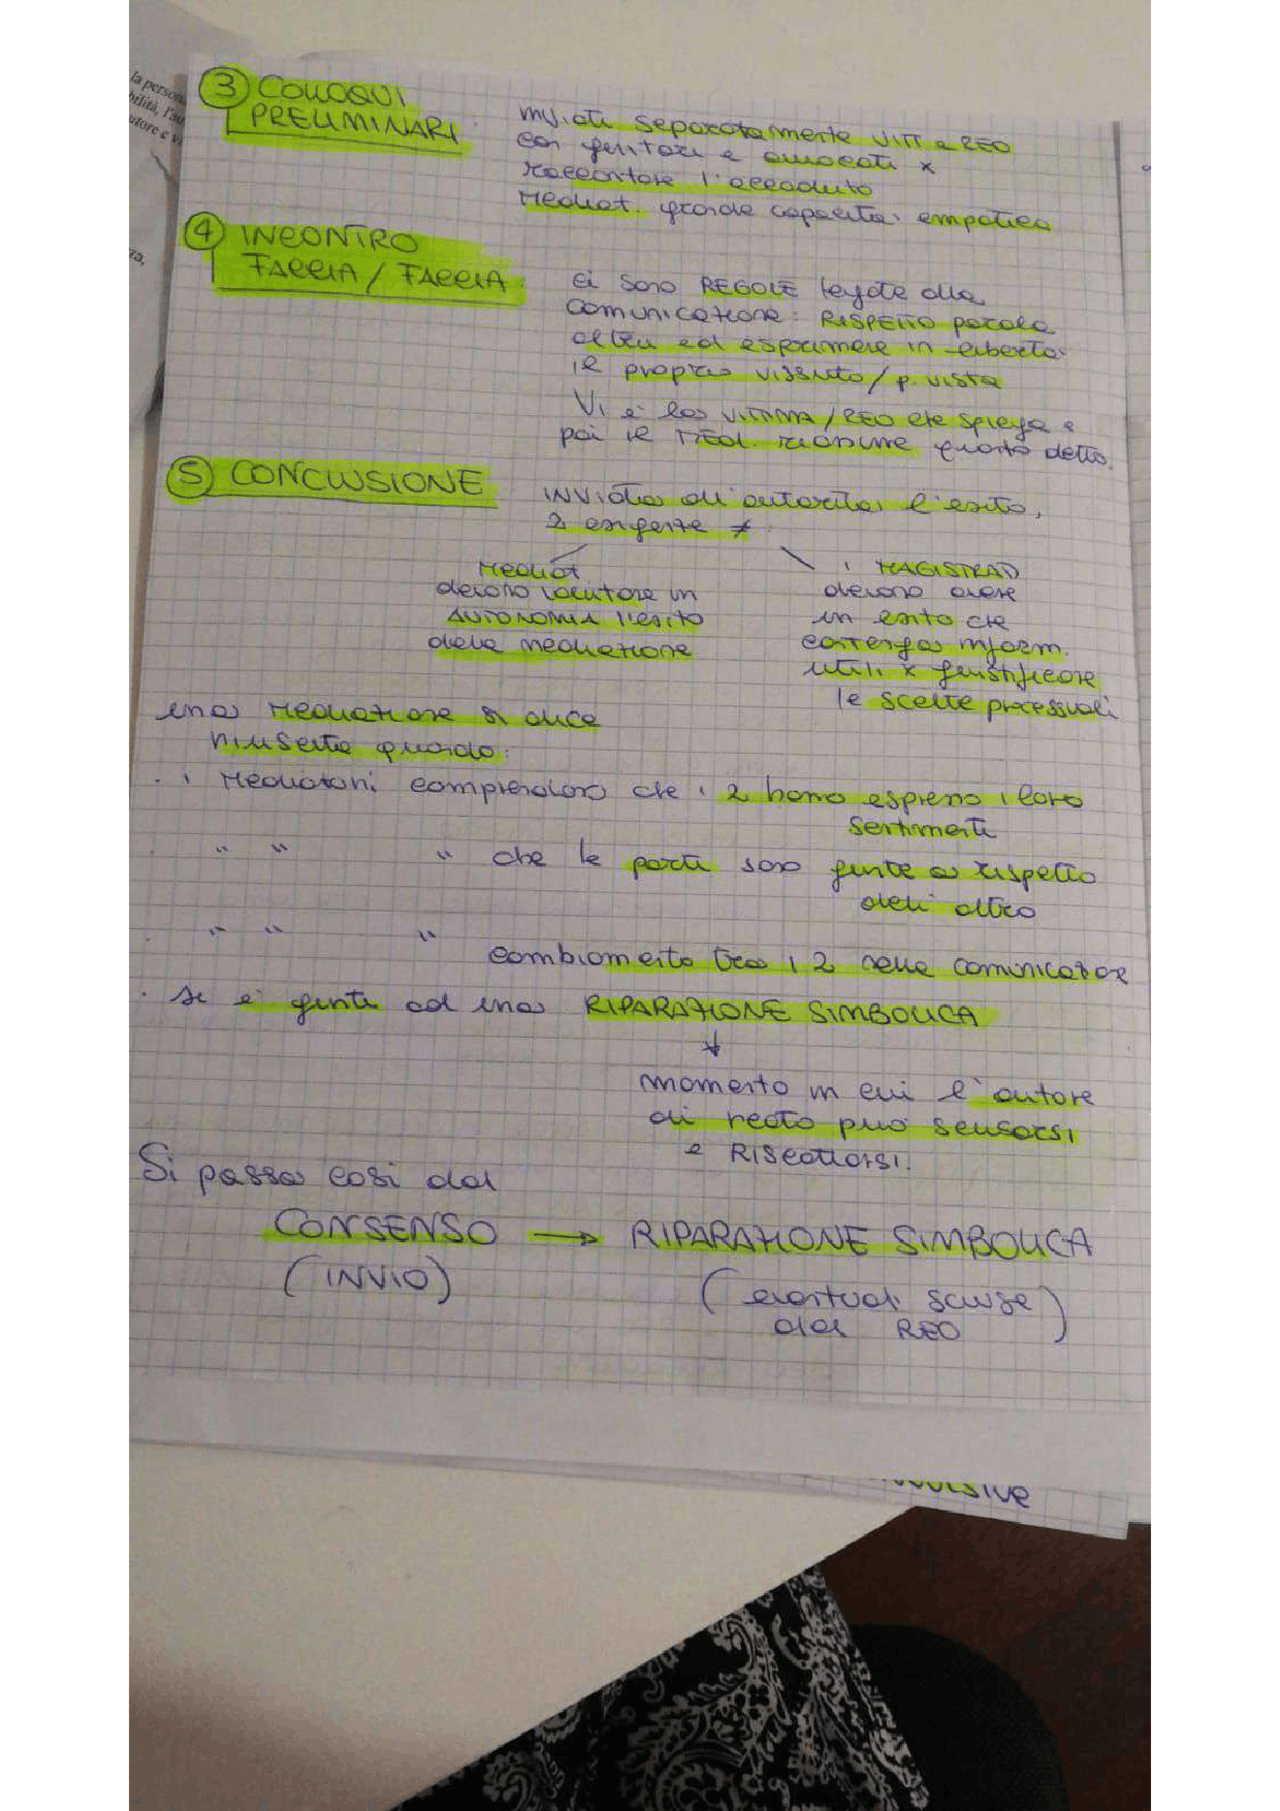 la person
bilità, l'au
utore e vi
za,
3 COLLOQUI
PRELIMINARI.
inviati separatamente VITT e REO
con genitori e avvocati x
raccontare l'accaduto
Mediat. grande capacità empatica
4 INCONTRO
FACCIA / FACCIA.
ci sono REGOLE legate alla
comunicazione: RISPETTO parola
altrui ed esprimere in libertà
il proprio vissuto / p. vista
Vi è la VITTIMA / REO che spiega e
poi il MED. riassume quanto detto.
5 CONCLUSIONE
INVIATO all'autorità l'esito,
2 esigenze ≠:
Mediat
devono valutare in
AUTONOMIA l'esito
della mediazione
i MAGISTRATI
devono avere
un esito che
contenga inform.
utili x giustificare
le scelte processuali
una Mediazione si dice
riuscita quando:
. i Mediatori comprendono che i 2 hanno espresso i loro
sentimenti
. " " " che le parti sono giunte a rispetto
dell'altro
. " " "
cambiamento tra i 2 nella comunicazione
. se è giunti ad una RIPARAZIONE SIMBOLICA
↓
momento in cui l'autore
di reato può scusarsi
e RISCATTARSI.
Si passa così dal
CONSENSO → RIPARAZIONE SIMBOLICA
(INVIO)
(eventuali scuse
dal REO)